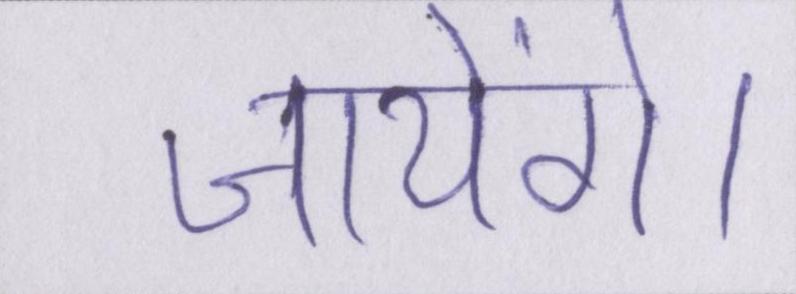 जायेंगे।